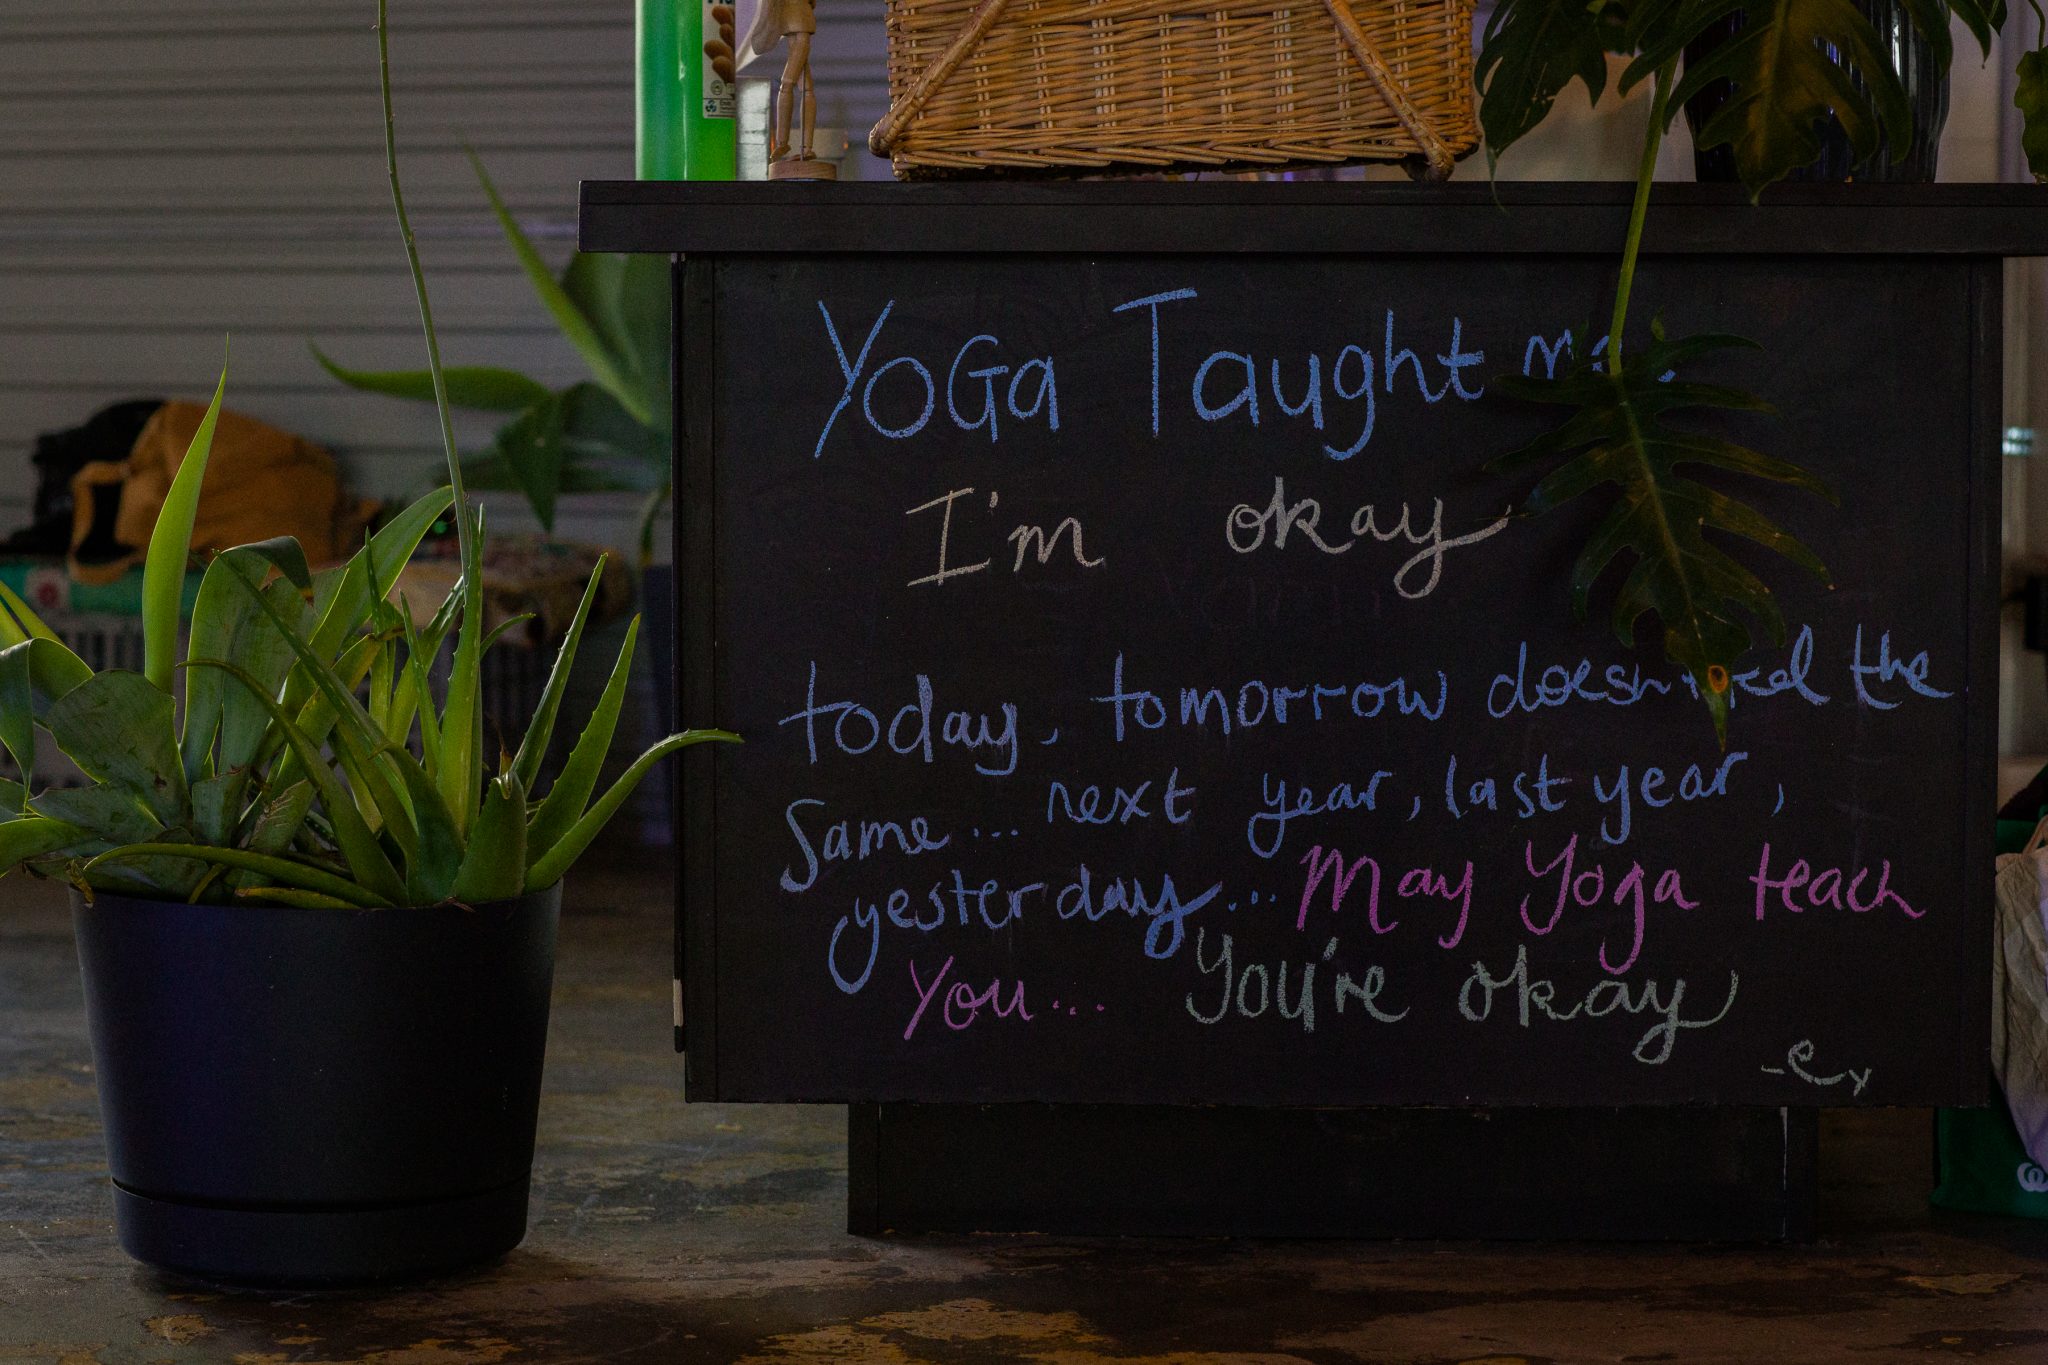 YOGa Taught me
I'm okay
today, tomorrow doesn't feel the
same... next year, last year,
yesterday... May Yoga teach
you... You're okay
-ex